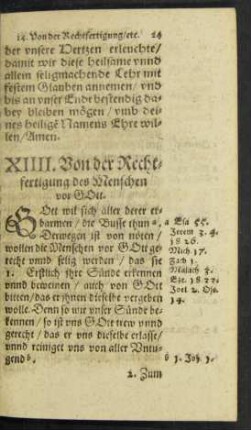 14. Von der Rechtfertigung/etc. 24
der vnsere Hertzen erleuchte/
damit wir diese heilsame vnnd
allein seligmachende Lehr mit
festem Glauben annemen/ vnd
bis an vnser Endt bestendig da-
bey bleiben mögen/ vmb dei-
nes heilige͂ Namens Ehre wil-
len/ Amen.
XIIII. Von der Recht-
fertigung des Menschen
vor GOtt.
GOtt wil sich aller derer er-
barmen/ die Busse thun a,
Derwegen ist von nöten/
wollen die Menschen vor GOtt ge-
recht vnnd selig werden/ das sie
1. Erstlich ihre Sünde erkennen
vnnd beweinen/ auch von GOtt
bitten/ das er ihnen dieselbe vergeben
wolle. Denn so wir vnser Sünde be-
kennen/ so ist vns GOtt trew vnnd
gerecht/ das er vns dieselbe erlasse/
vnnd reiniget vns von aller Vntu-
gend b.
a Esa 55.
Jerem 3. 4.
18 26.
Mich 17.
Zach 1.
Malach 3.
Eze. 18 22.
Joel 2. Ose.
14.
b 1. Joh 1.
2. Zum